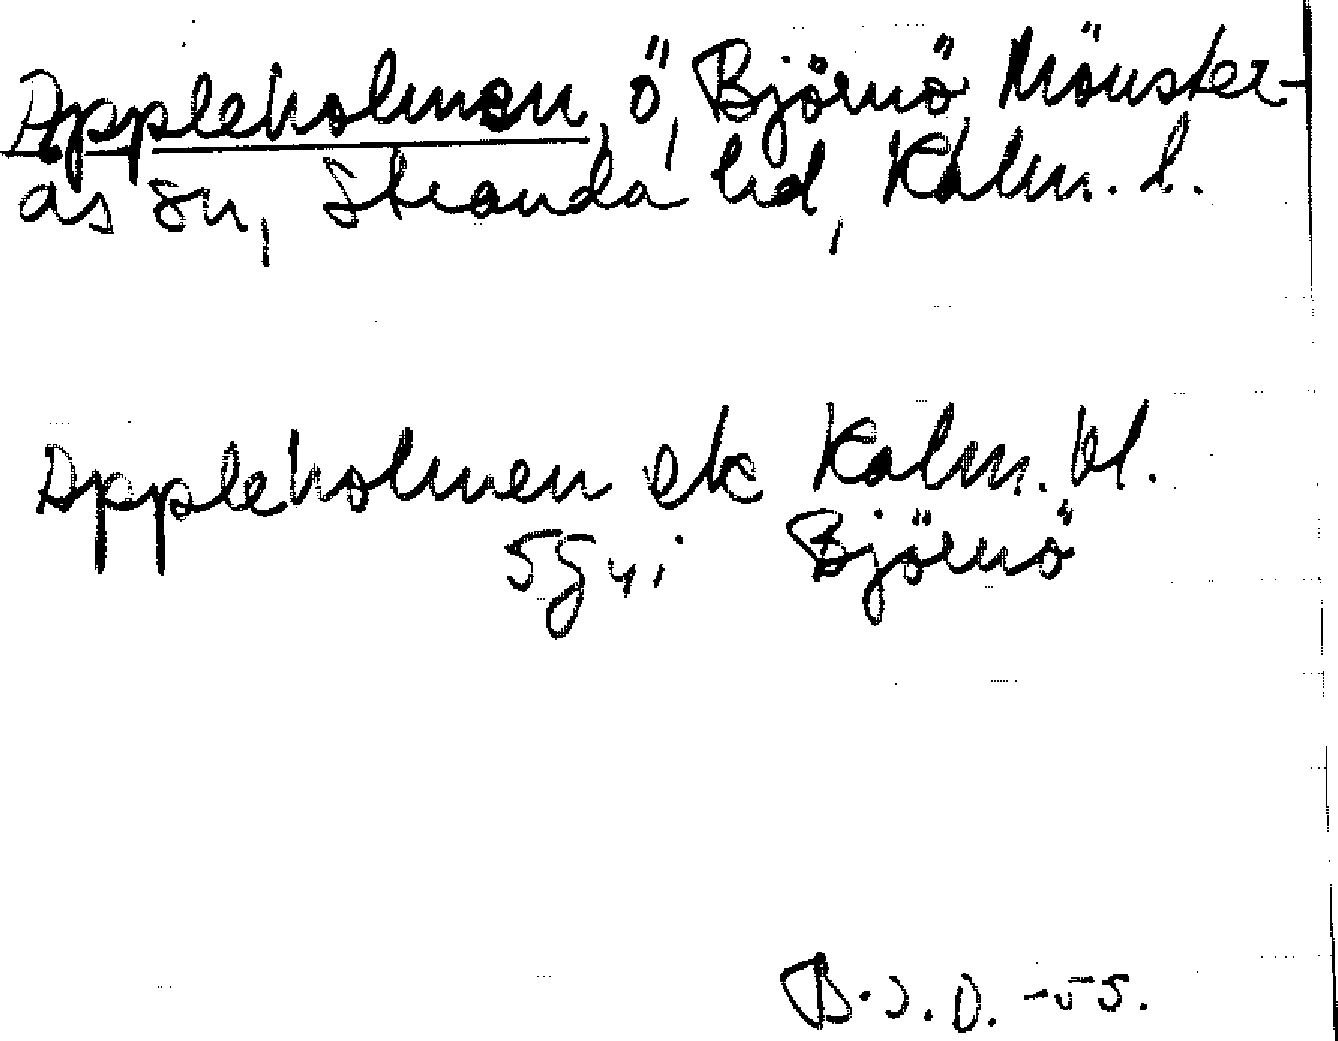 Äppleholmen, ö, Björnö Mönster-
ås sn, Stranda hd, Kalm. l.
Äppleholmen ek Kalm. bl.
5g vi Björnö
B.J.D. -55.